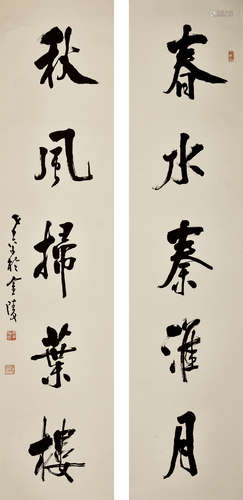 春水秦淮月
秋風掃葉樓
於金陵